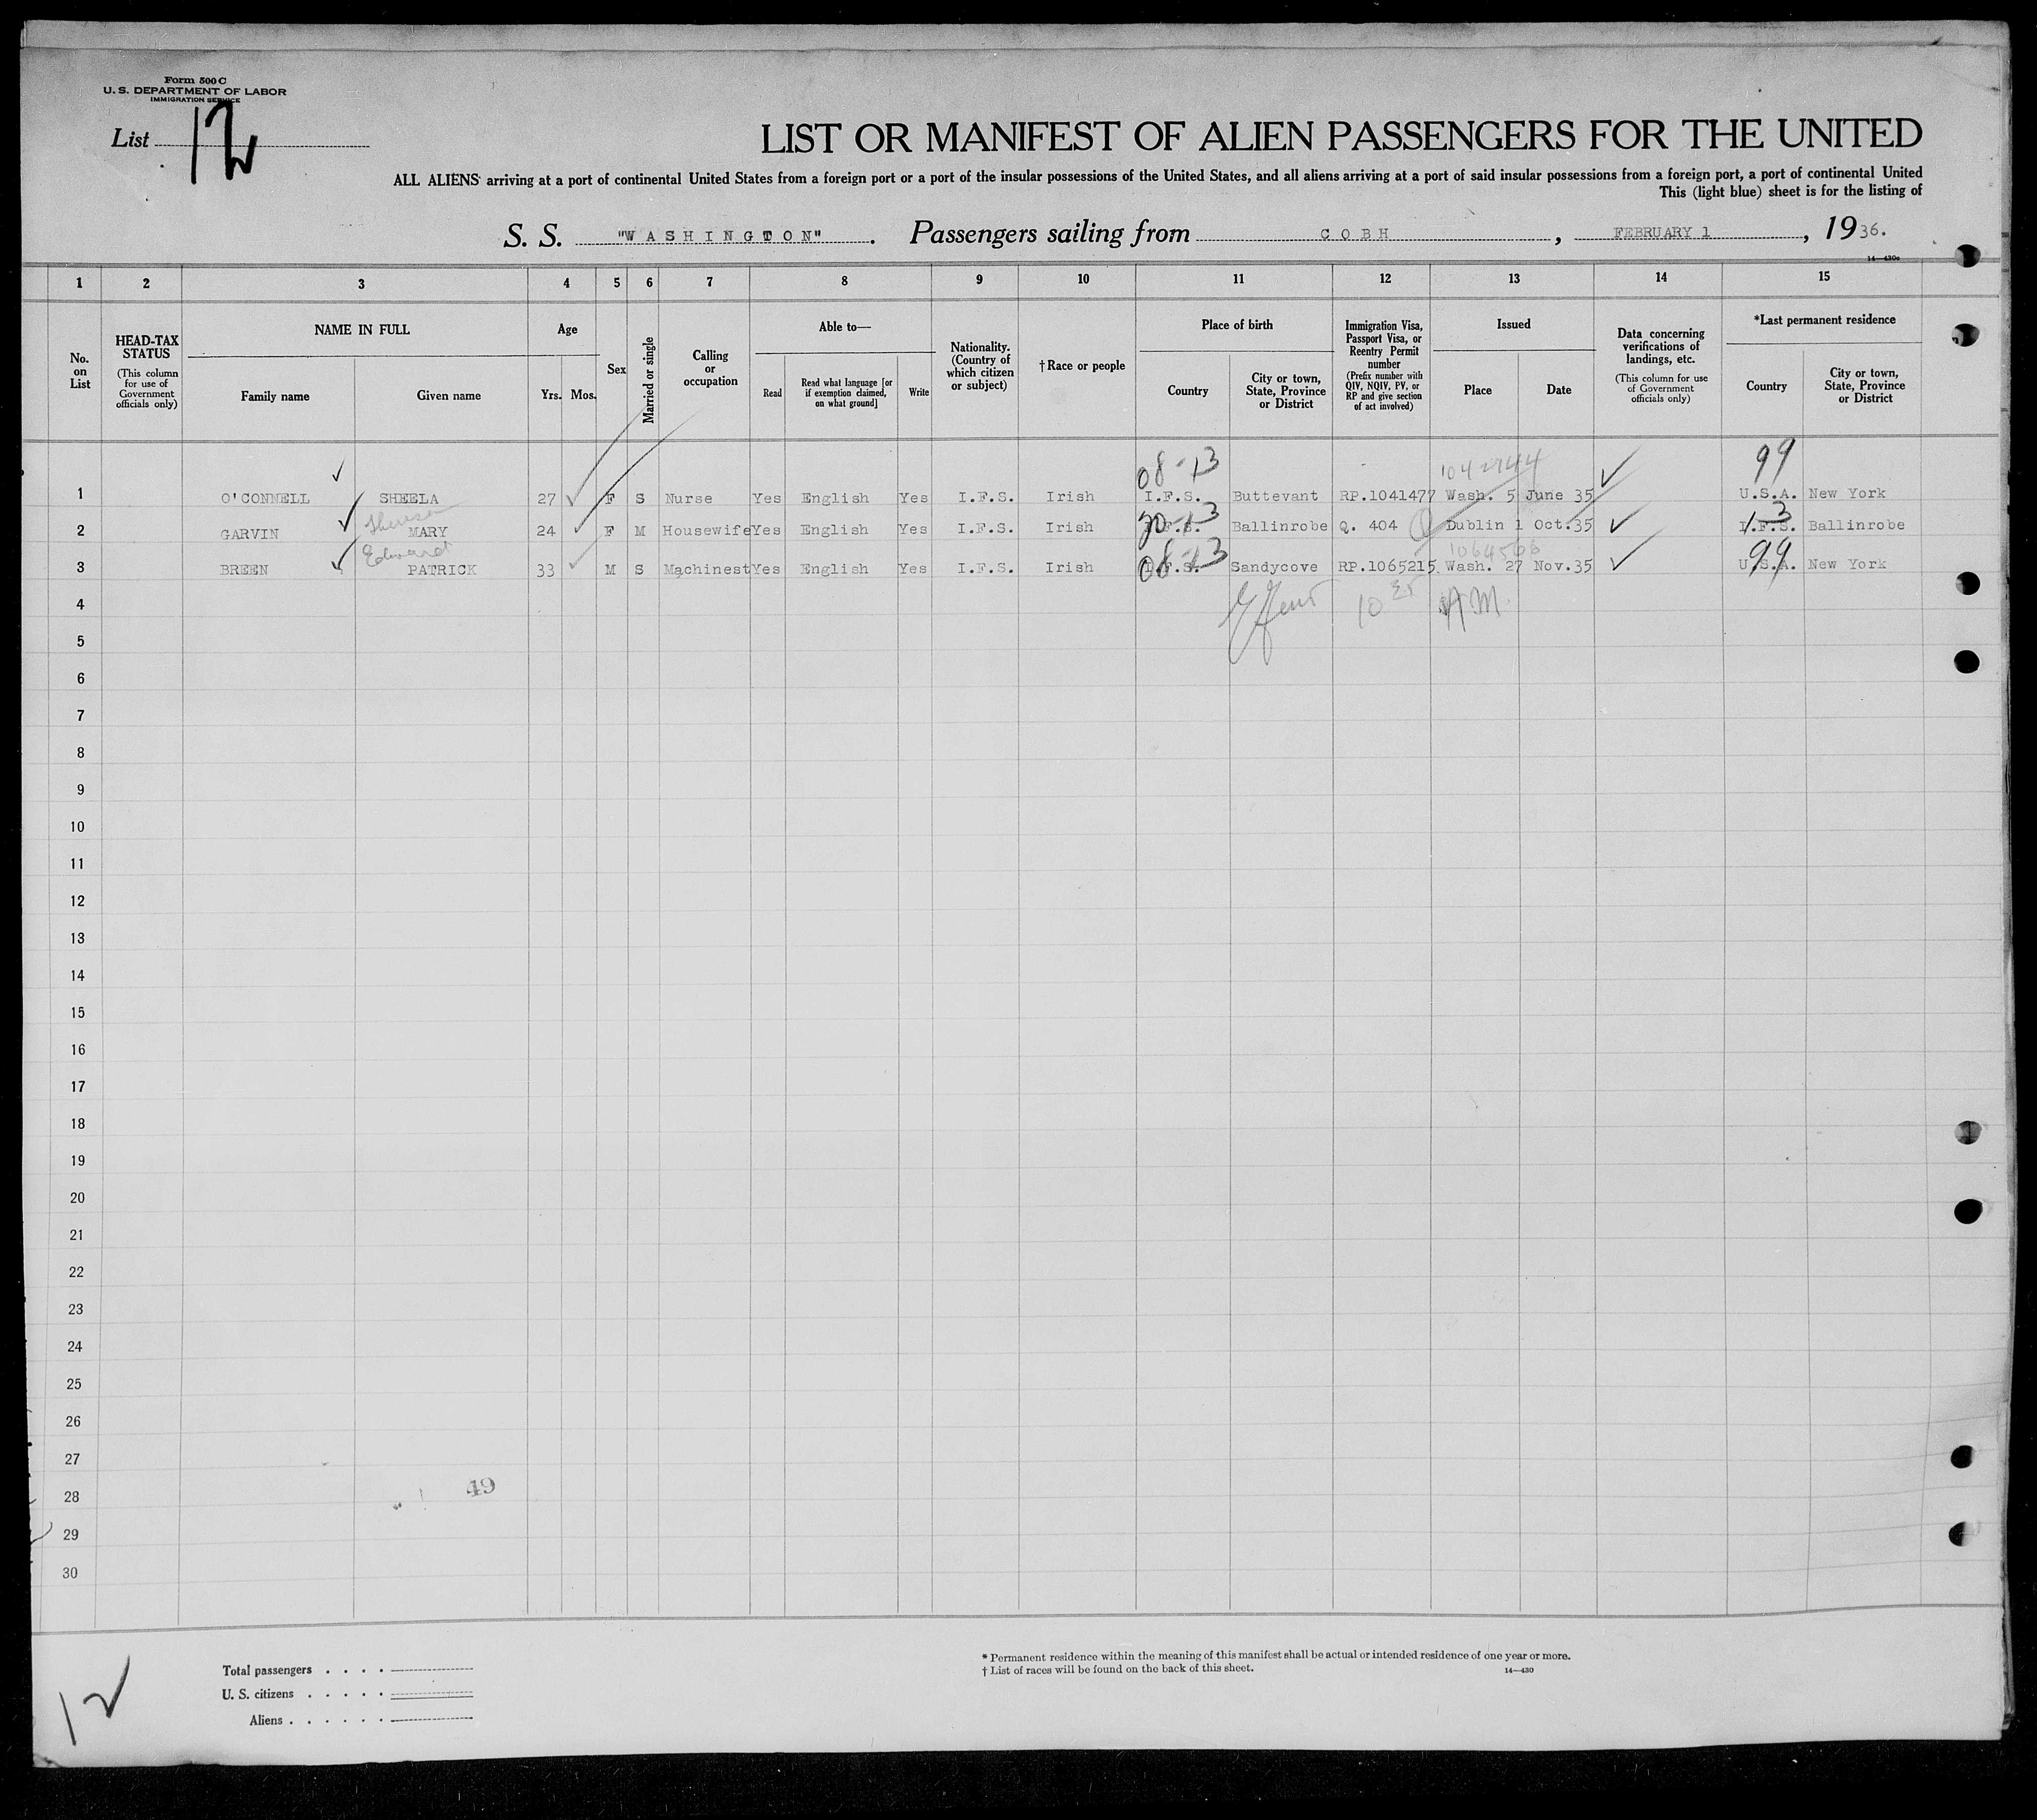 Form 500 C
U. S. DEPARTMENT OF LABOR
IMMIGRATION SERVICE
List 12
LIST OR MANIFEST OF ALIEN PASSENGERS FOR THE UNITED
ALL ALIENS arriving at a port of continental United States from a foreign port or a port of the insular possessions of the United States, and all aliens arriving at a port of said insular possessions from a foreign port, a port of continental United
This (light blue) sheet is for the listing of
S. S. "WASHINGTON". Passengers sailing from COBH, FEBRUARY 1, 1936.
14—430c
1 2 3 4 5 6 7 8 9 10 11 12 13 14 15
No. on List
HEAD-TAX STATUS (This column for use of Government officials only)
NAME IN FULL
Family name Given name
Age
Yrs. Mos.
Sex
Married or single
Calling or occupation
Able to—
Read Read what language [or if exemption claimed, on what ground] Write
Nationality. (Country of which citizen or subject)
† Race or people
Place of birth
Country City or town, State, Province or District
Immigration Visa, Passport Visa, or Reentry Permit number (Prefix number with QIV, NQIV, PV, or RP and give section of act involved)
Issued
Place Date
Data concerning verifications of landings, etc. (This column for use of Government officials only)
*Last permanent residence
Country City or town, State, Province or District
08-13 1042744 99
1 O'CONNELL SHEELA 27 F S Nurse Yes English Yes I.F.S. Irish I.F.S. Buttevant RP.1041477 Wash. 5 June 35 U.S.A. New York
Theresa 20-13 13
2 GARVIN MARY 24 F M Housewife Yes English Yes I.F.S. Irish I.F.S. Ballinrobe Q. 404 Dublin 1 Oct.35 I.F.S. Ballinrobe
Edward 08-13 1064566 99
3 BREEN PATRICK 33 M S Machinest Yes English Yes I.F.S. Irish I.F.S. Sandycove RP.1065215 Wash. 27 Nov.35 U.S.A. New York
4 10 25 AM
5
6
7
8
9
10
11
12
13
14
15
16
17
18
19
20
21
22
23
24
25
26
27
28 49
29
30
12
Total passengers . . . .
U. S. citizens . . . . .
Aliens . . . . . .
* Permanent residence within the meaning of this manifest shall be actual or intended residence of one year or more.
† List of races will be found on the back of this sheet. 14—430